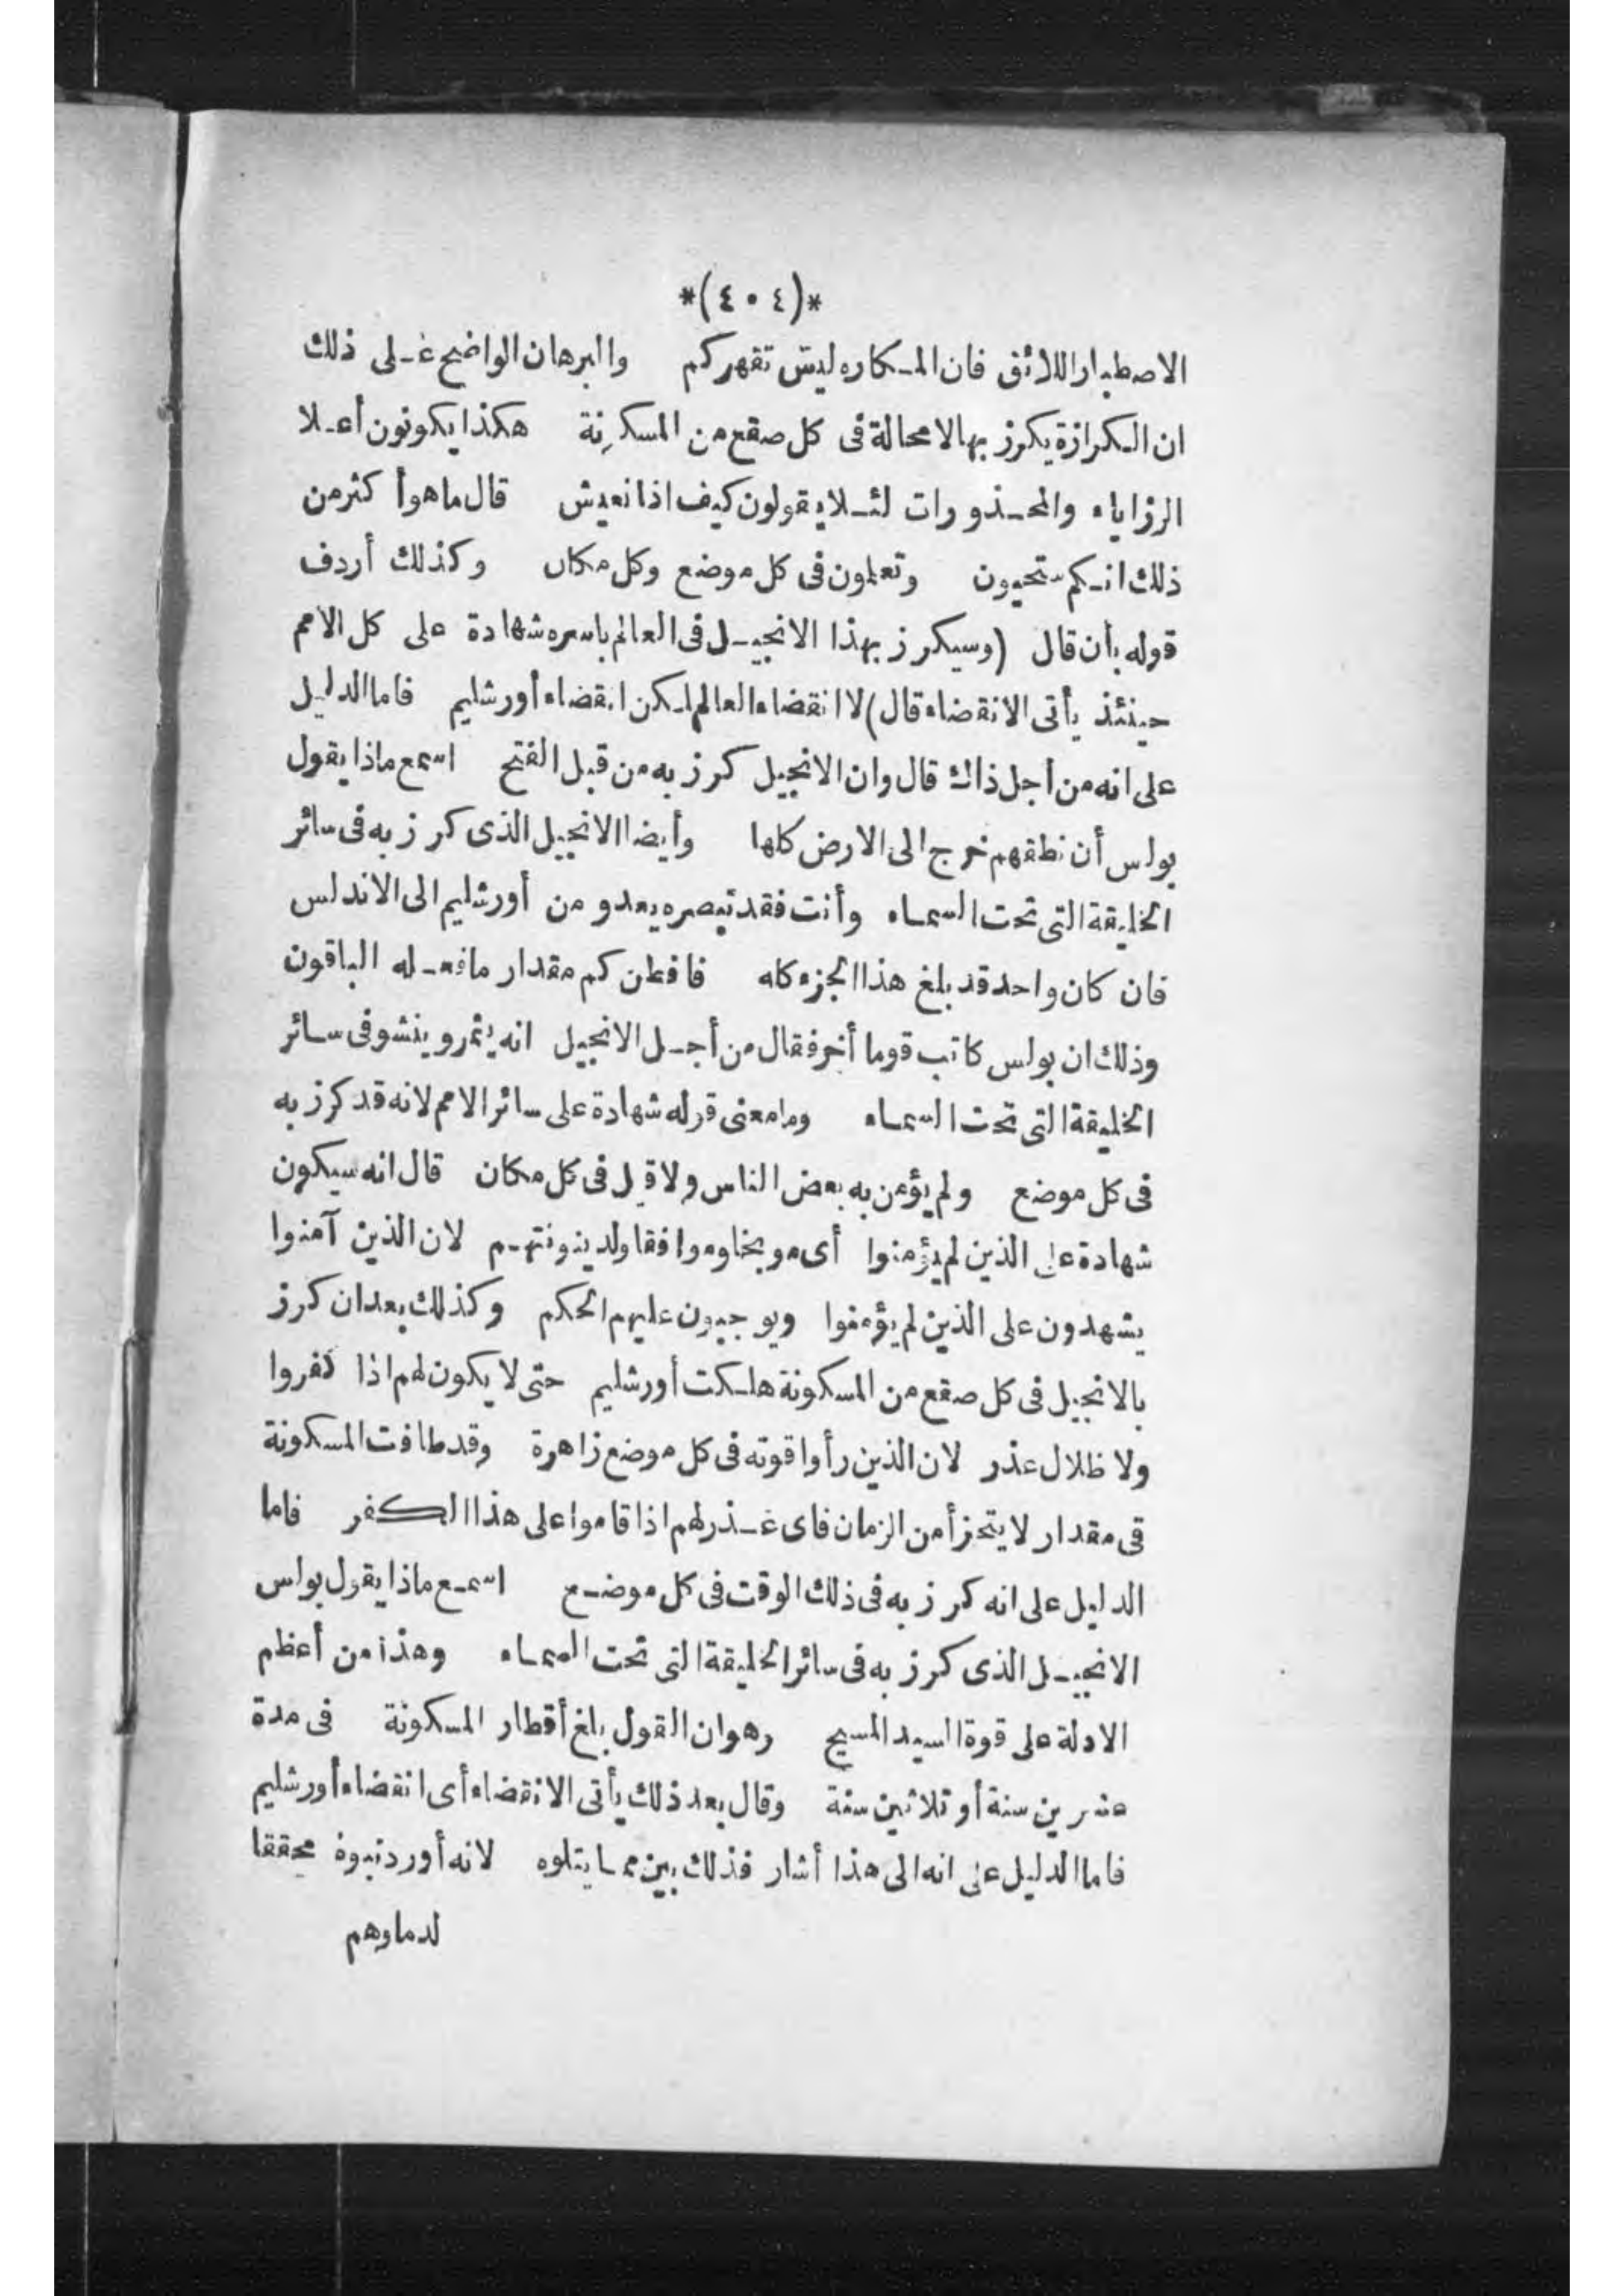 *(٤٠٤)*
الاصطبار اللائق فان المكاره ليس تقهركم والبرهان الواضح على ذلك
ان الكرازة يكرز بها لا محالة فى كل صقع من المسكونة هكذا يكونون أعلا
الرزاياء والمحذورات لئلا يقولون كيف اذا نعيش قال ما هو أكثر من
ذلك انكم ستحيون وتعلمون فى كل موضع وكل مكان وكذلك أردف
قوله بأن قال (وسيكرز بهذا الانجيل فى العالم باسره شهادة على كل الامم
حينئذ يأتى الانقضاء قال) لا انقضاء العالم لكن انقضاء أورشليم فاما الدليل
على انه من اجل ذاك قال وان الانجيل كرز به من قبل الفتح اسمع ماذا يقول
بولس أن نطقهم خرج الى الارض كلها وأيضا الانجيل الذى كرز به فى سائر
الخليقة التى تحت السماء وأنت فقد تبصره يعدو من أورشليم الى الاندلس
فان كان واحد قد بلغ هذا الجزء كله فافطن كم مقدار ما فعله الباقون
وذلك ان بولس كاتب قوما أخر فقال من أجل الانجيل انه يثمر وينشو فى سائر
الخليقة التى تحت السماء وما معنى قوله شهادة على سائر الامم لانه قد كرز به
فى كل موضع ولم يؤمن به بعض الناس ولا قبل فى كل مكان قال انه سيكون
شهادة على الذين لم يؤمنوا أى موبخا وموافقا ولدينونتهم لان الذين آمنوا
يشهدون على الذين لم يؤمنوا ويوجبون عليهم الحكم وكذلك بعد ان كرز
بالانجيل فى كل صقع من المسكونة هلكت أورشليم حتى لا يكون لهم اذا كفروا
ولا ظلال عذر لان الذين رأوا قوته فى كل موضع زاهرة وقد طافت المسكونة
فى مقدار لا يتجزأ من الزمان فاى عذر لهم اذا قاموا على هذا الكفر فاما
الدليل على انه كرز به فى ذلك الوقت فى كل موضع اسمع ماذا يقول بولس
الانجيل الذى كرز به فى سائر الخليقة التى تحت السماء وهذا من أعظم
الادلة على قوة السيد المسيح وهو ان القول بلغ أقطار المسكونة فى مدة
عشرين سنة أو ثلاثين سنة وقال بعد ذلك يأتى الانقضاء أى انقضاء أورشليم
فاما الدليل على انه الى هذا أشار فذلك بين مما يتلوه لانه أورد نبوة محققا
لدمارهم